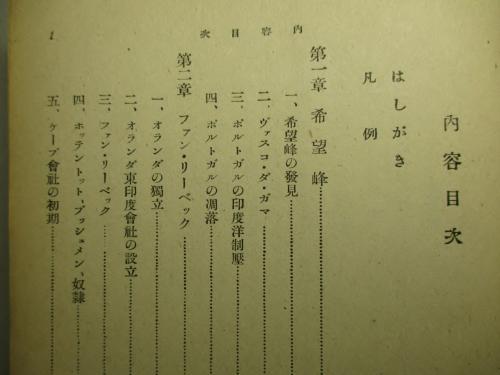 內容目次
はしがき
凡例
第一章 希望峰
一、希望峰の發見
二、ヴァスコ・ダ・ガマ
三、ポルトガルの印度洋制壓
四、ポルトガルの凋落
第二章 ファン・リーベック
一、オランダの獨立
二、オランダ東印度會社の設立
三、ファン・リーベック
四、ホッテントット、ブッシュメン、奴隷
五、ケープ會社の初期
內容目次
1